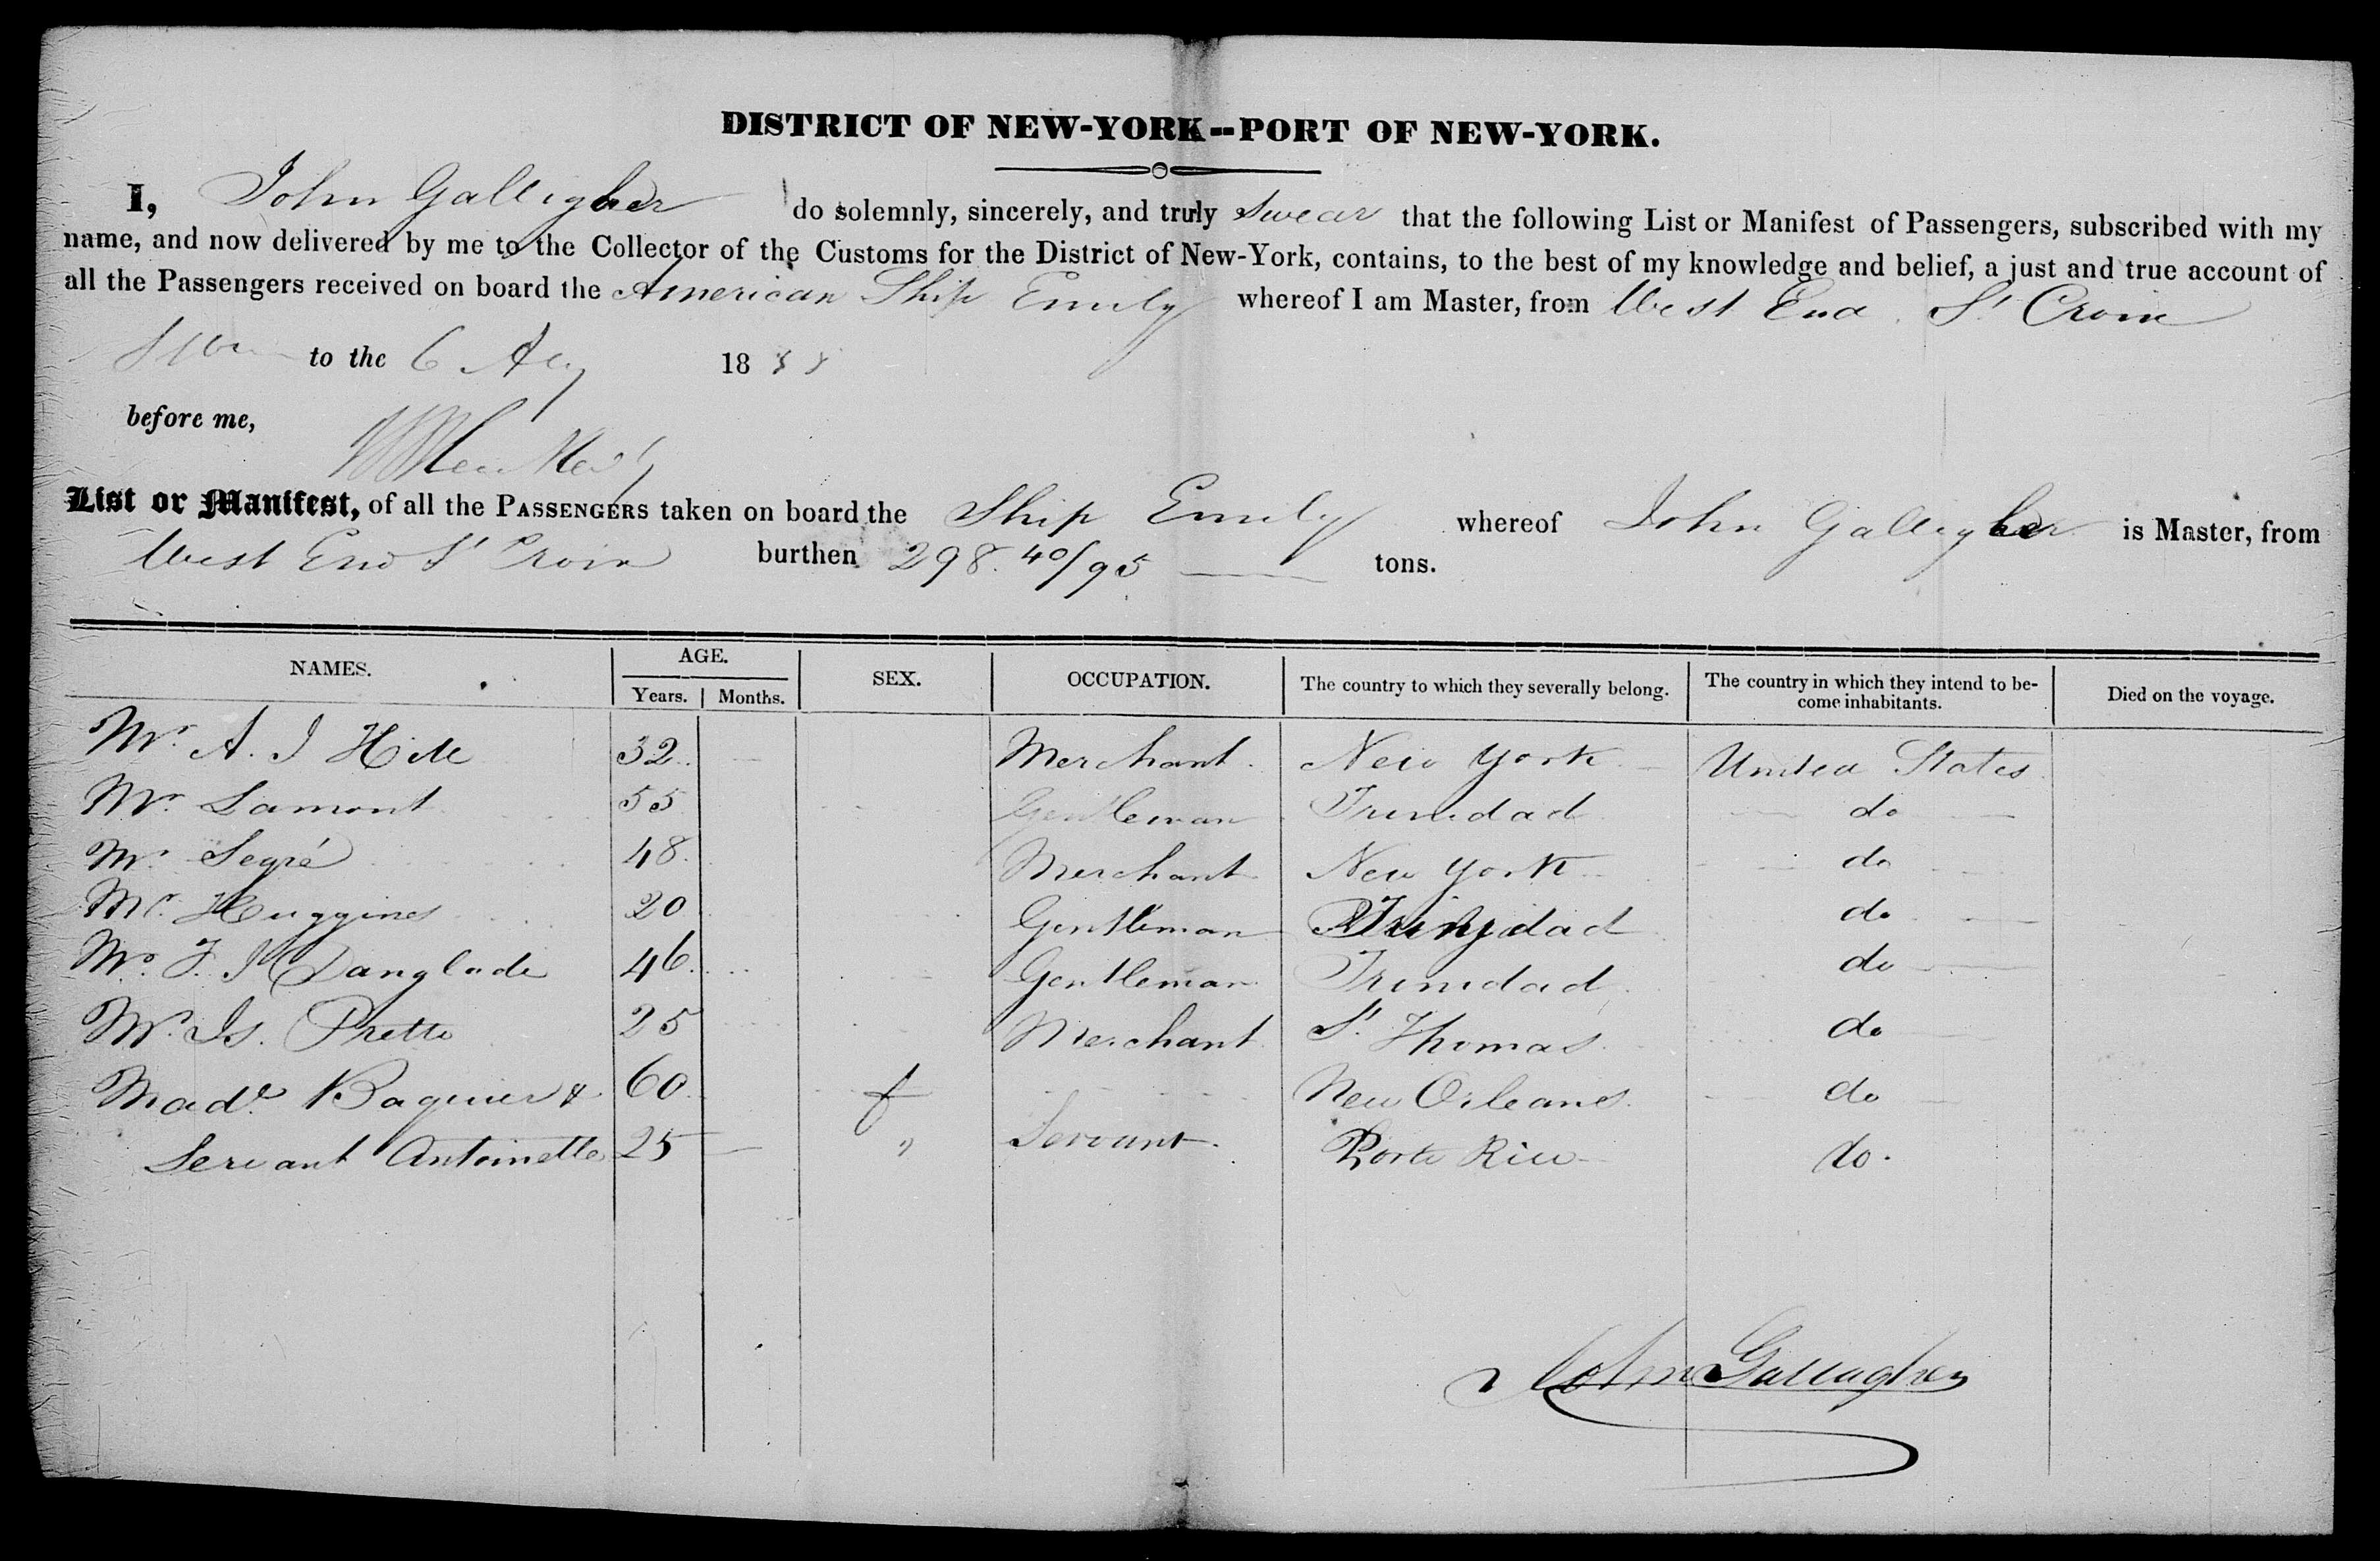 DISTRICT OF NEW-YORK--PORT OF NEW-YORK.
I, John Galligher do solemnly, sincerely, and truly swear that the following List or Manifest of Passengers, subscribed with my
name, and now delivered by me to the Collector of the Customs for the District of New-York, contains, to the best of my knowledge and belief, a just and true account of
all the Passengers received on board the American Ship Emily whereof I am Master, from West End St Croix
to the 6 Aug 18
before me,
List or Manifest, of all the PASSENGERS taken on board the Ship Emily whereof John Galligher is Master, from
West End St Croix burthen 298. 40/95 tons.
NAMES. AGE. Years. Months. SEX. OCCUPATION. The country to which they severally belong. The country in which they intend to become inhabitants. Died on the voyage.
Mr. A. J 32 Merchant. New York United States
Mr. Lamont 55 Gentleman Trinidad do
Mr. Segré 48. Merchant New York do
Mr. Huggines 20 Gentleman Trinidad do
Mr. F. J Danglade 46. Gentleman Trinidad do
Mr. Js. Pretto 25 Merchant St. Thomas do
Made. Baquier & 60 f New Orleans do
Servant Antoinette 25 " Servant. Porto Rico do.
John Gallagher